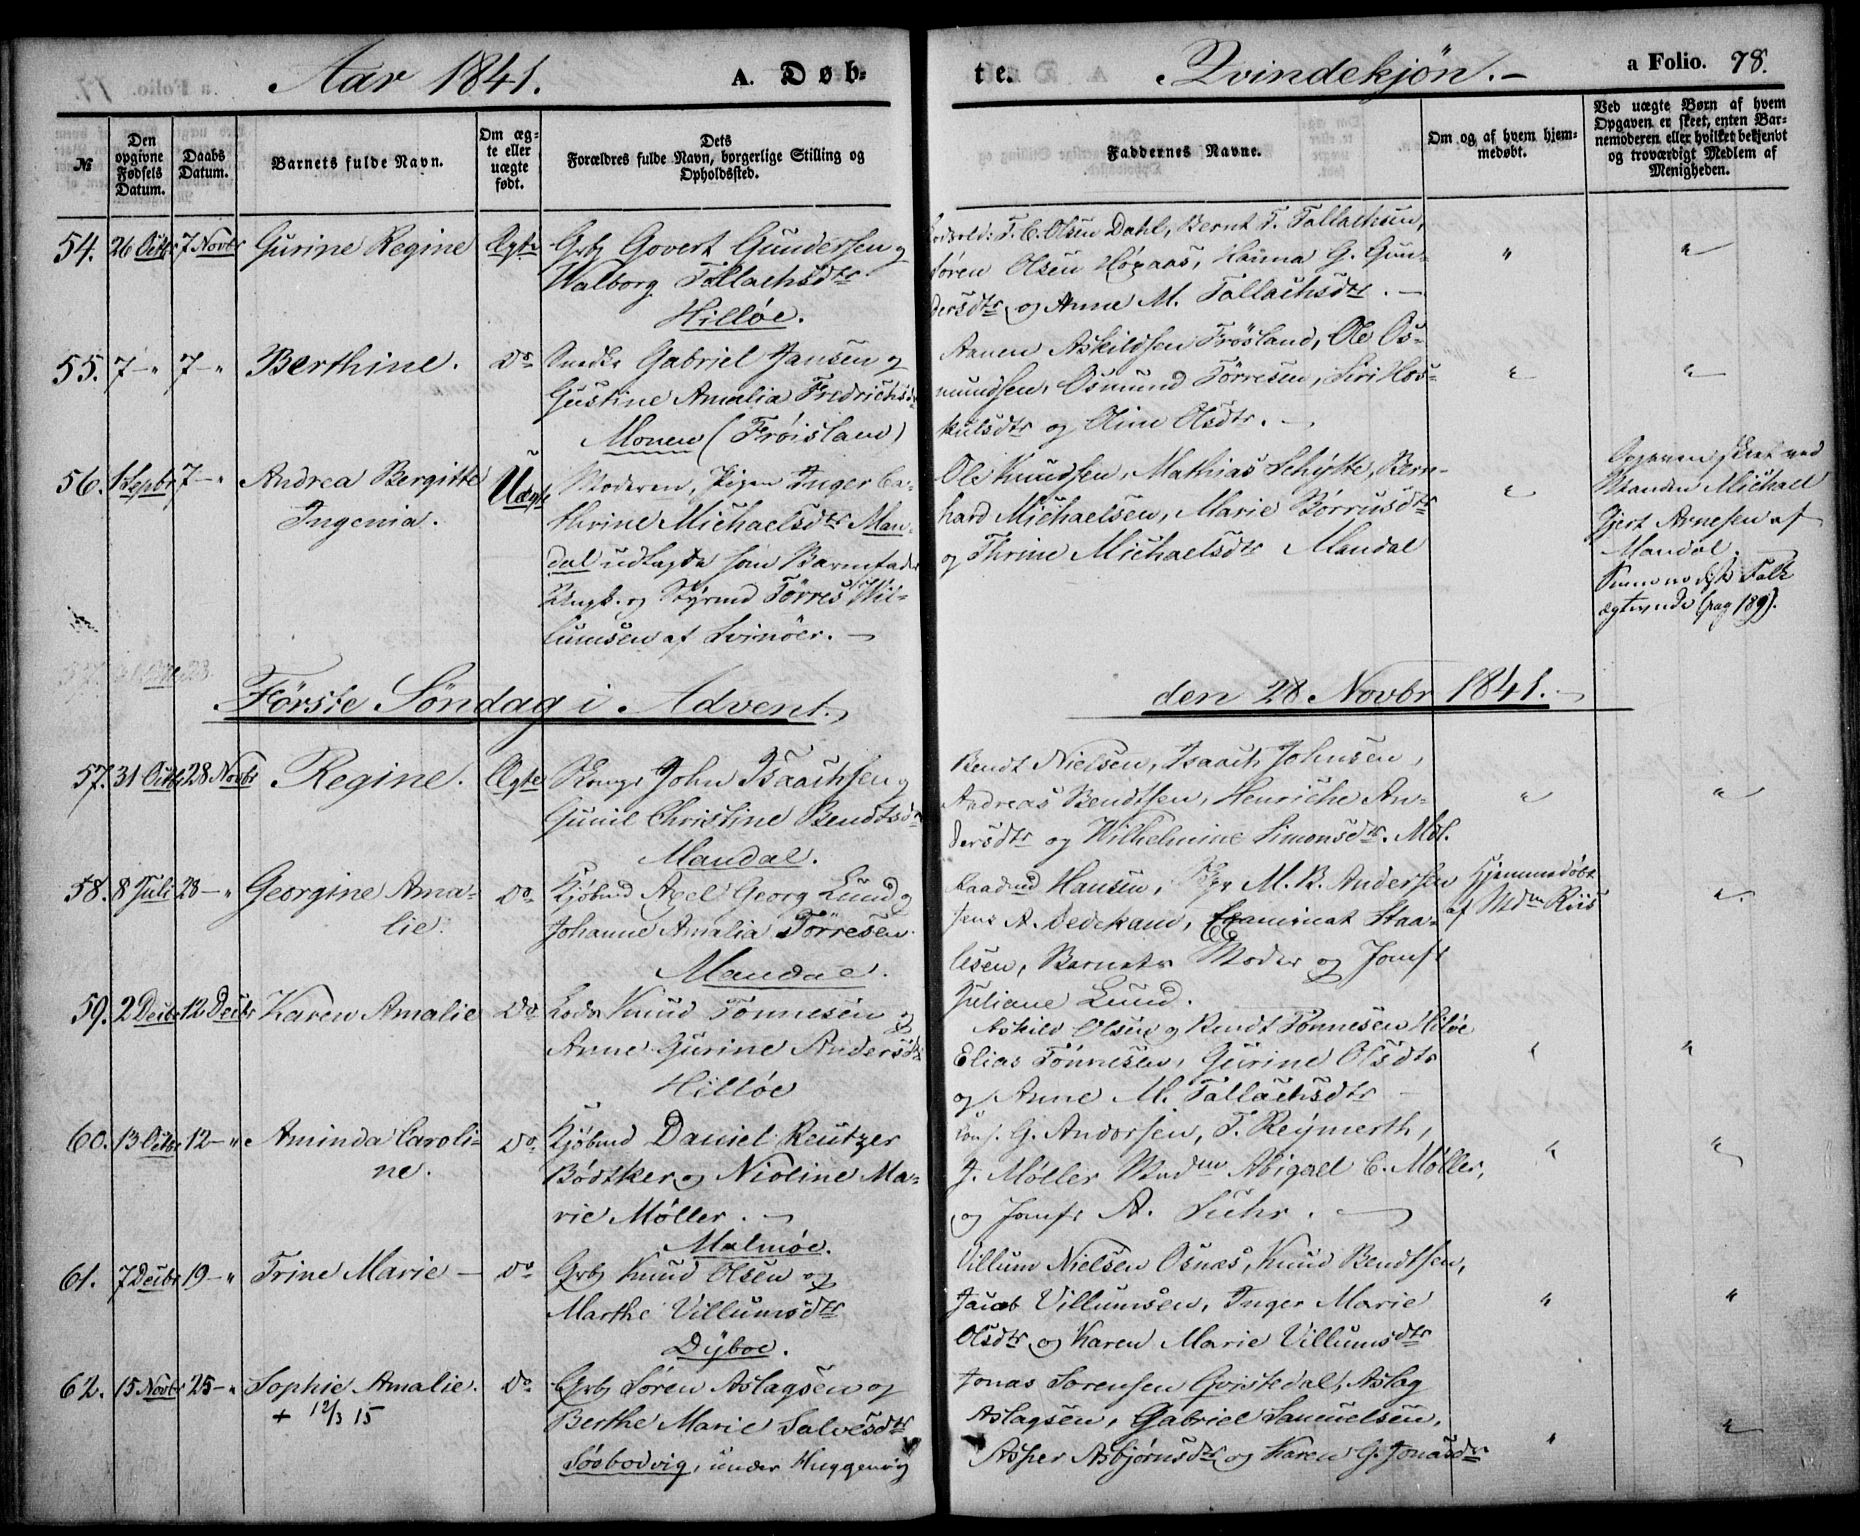 Aar 1841. A. Døb-
te. Qvindekjön. a Folio. 78.
№
Den opgivne Fødsels Datum.
Daabs Datum.
Barnets fulde Navn.
Om ægte eller uægte født.
Dets
Forældres fulde Navn, borgerlige Stilling og
Opholdssted.
Faddernes Navne.
Om og af hvem hjemmedøbt.
Ved uægte Børn af hvem
Opgaven er skeet, enten Bar-
nemoderen eller hvilket bekjendt
og troværdigt Medlem af
Menigheden.
54. 26 Octbr 7 Novbr Gurine Regine Ægte Grbr Govert Gundersen og
Walborg Tallachsdtr
Hilløe.
T. C. Olsen Dahl, Bernt T. Tallachsen,
Sören Olsen Høgaas, Hanna G. Gun-
dersdtr og Anne M. Tallachsdtr. " "
55. 7 - " 7 - " Berthine. Do Snedkr Gabriel Jansen og
Gustine Amalia Fredrichsdtr
Monen (Frøisland)
Aanen Askildsen Frösland, Ole Os-
mundsen, Osmund Törresen, Siri Hos-
kulsdtr og Oline Olsdtr. " "
56. 1 Sepbr 7 - " Andrea Bergitte
Ingenia.
Uægte
Moderen, Pigen Inger Ca-
thrine Michaelsdtr Man-
dal udlagde som Barnefader
Ungk. og Styrmd Törres Wil-
lumsen af Svinöer.
Ole Knudsen, Mathias Schytte, Bern-
hard Michaelsen, Marie Börresdtr
og Thrine Michaelsdtr Mandal
"
Opgaven skeet ved
Manden Michael
Gjert Arnesen af
Mandal.
Folk
ægteviede (pag 189).
Første Søndag i Advent. den 28 Novbr 1841.
57. 31 Octbr 28 Novbr Regine. Ægte John Isaachsen og
Gunil Christine Bendtsdtr
Mandal.
Bendt Nielsen, Isaach Johnsen,
Andreas Bendtsen, Henriche An-
dersdtr og Wilhelmine Simonsdtr. Mdl. " "
58. 8 Juli 28 - " Georgine Ama-
lie.
Do
Kjøbmd Axel Georg Lund og
Johanne Amalia Törresen.
Mandal.
Raadmd Hansen, M. B. Andersen
Jens A. Dedekam, Examinat Staa-
lesen, Barnets Moder og Jomfr
Juliane Lund.
Hjemmedöbt
af Mdm Riis
"
59. 2 Decbr 12 Decbr Karen Amalie Do Lods Knud Tönnesen og
Anne Gurine Andersdtr
Hilløe
Askild Olsen og Bendt Tönnesen Hilöe
Elias Tönnesen, Gurine Olsdtr
og Anne M. Tallachsdtr " "
60. 13 Octbr 12 - " Aminda Caroli-
ne.
Do
Kjöbmd Daniel Reutzer
Bödtker og Nioline Ma-
rie Møller.
Malmöe.
Cons. G. Andorsen, T. Reymerth,
J. Møller Madm Abigael C. Møller,
og Jomfr A. Suhr. " "
61. 7 Decbr 19 - " Trine Marie Do Grbr Knud Olsen og
Marthe Villumsdtr
Dyboe.
Villum Nielsen Osnæs, Knud Bendtsen,
Jacob Villumsen, Inger Marie
Olsdtr og Karen Marie Villumsdtr " "
62. 15 Novbr 25 - " Sophie Amalie.
+ 12/3 15
Do
Grbr Sören Aslagsen og
Berthe Marie Salvesdtr
Søebodvig, under Huggenvig
Jonas Sörensen Gvistedal, Aslag
Aslagsen, Gabriel Samuelsen,
Asper Asbjørnsdtr og Karen G. Jonasdtr " "